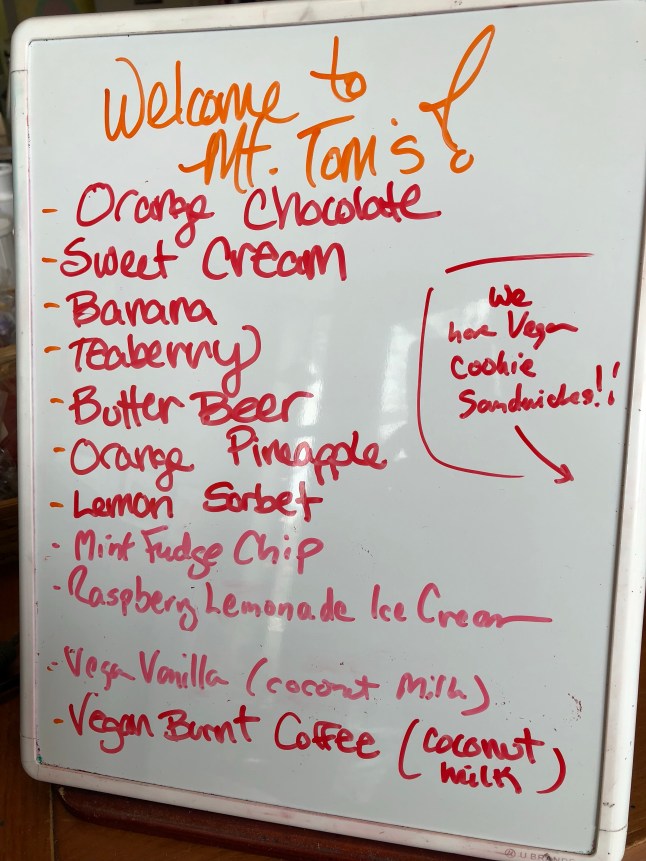 Welcome to
Mt. Tom's!
- Orange Chocolate
- Sweet Cream
- Banana
- Teaberry
- Butter Beer
- Orange Pineapple
- Lemon Sorbet
- Mint Fudge Chip
- Raspberry Lemonade Ice Cream
- Vegan Vanilla (coconut Milk)
- Vegan Burnt Coffee (coconut
milk)
We
have Vegan
Cookie
Sandwiches!!
U BRANDS